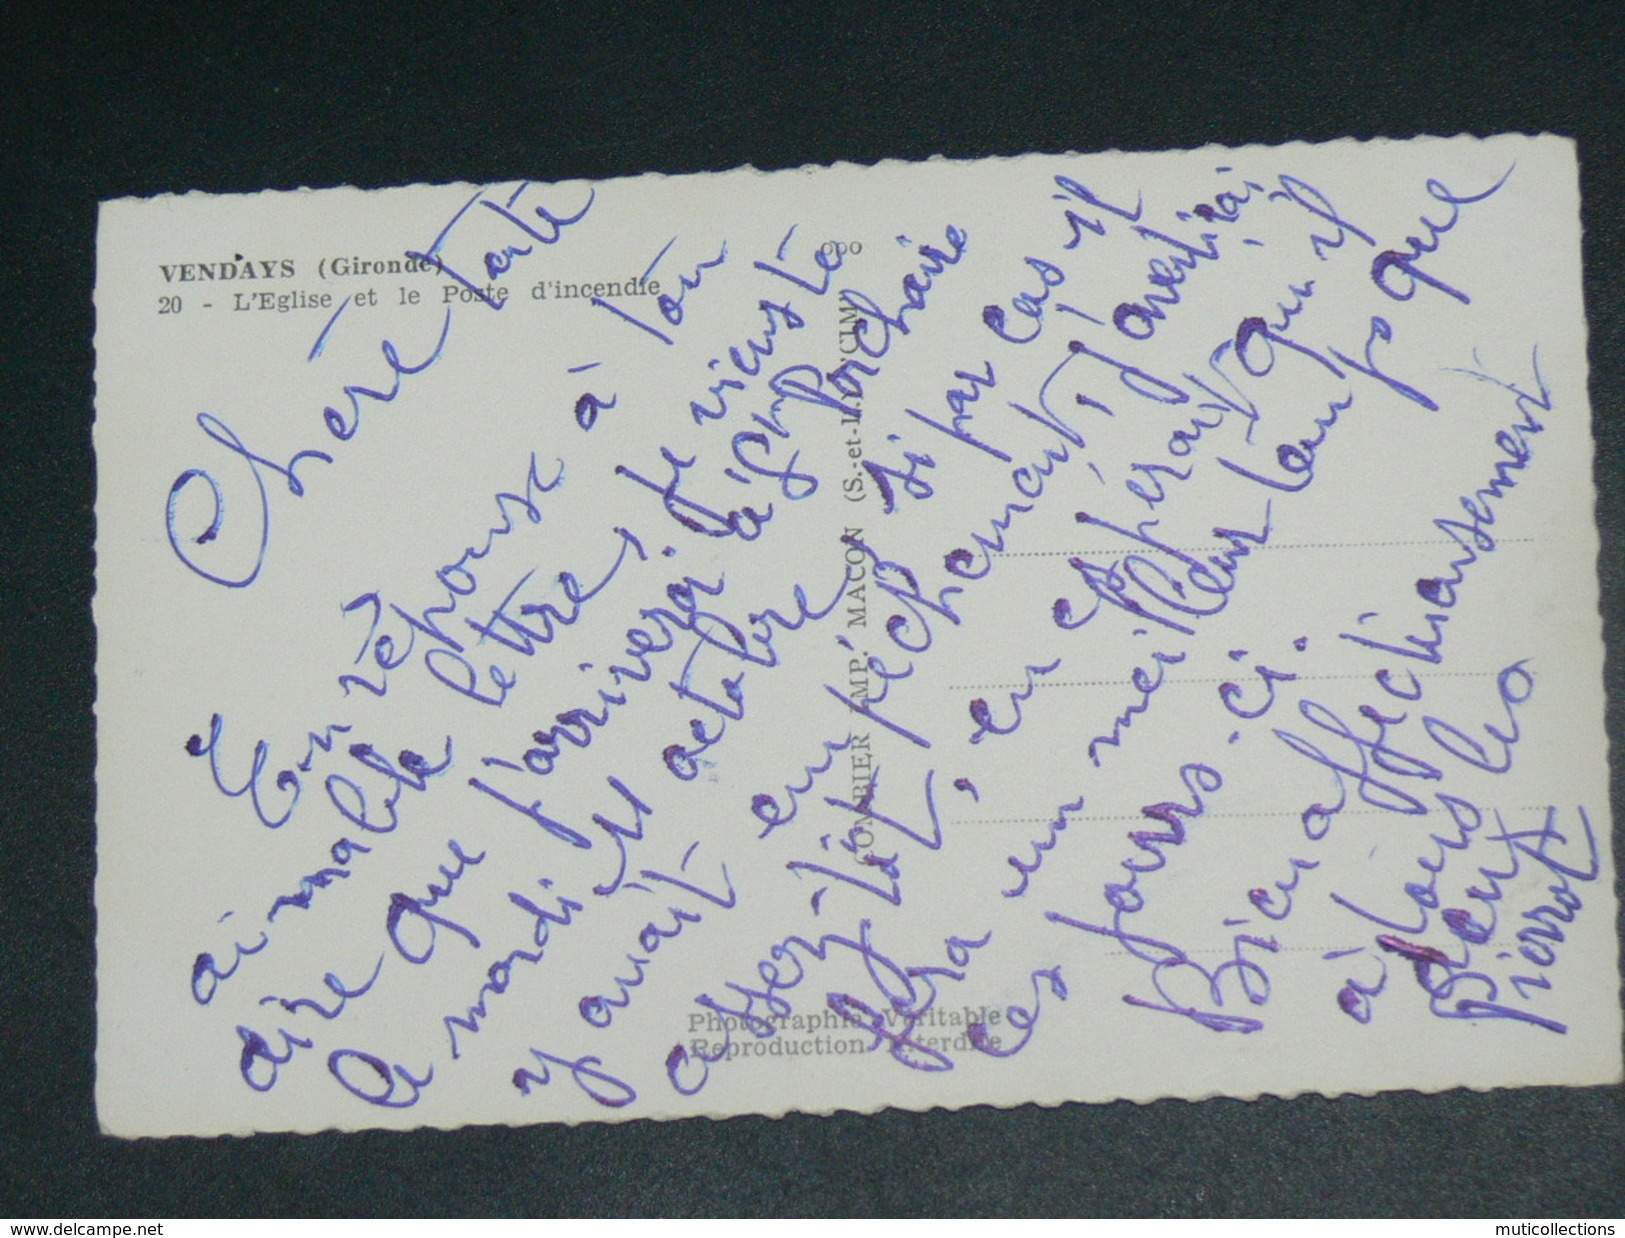 VENDAYS (Gironde)
20 - L'Eglise et le Poste d'incendie
COMBIER IMP. MACON (S.-et-L.) CIM
Photographie Véritable
Reproduction Interdite
Chère tante
En réponse à ton
aimable lettre, je viens te
dire que j'arriverai à
le mardi 11 octobre prochain
y avait en si par cas il
assez tôt, empêchement, j'avertirai
fera un meilleur temps que
en espérant qu'il
ces jours-ci.
Bien affectueusement
à tous les
deux
Pierrot
www.delcampe.net
muticollections